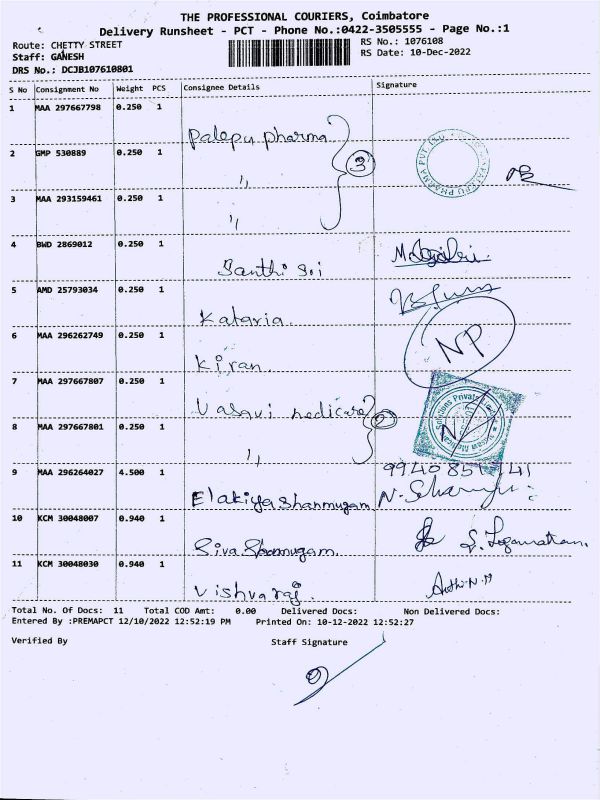 THE PROFESSIONAL COURIERS, Coimbatore
Delivery Runsheet - PCT - Phone No.:0422-3505555 - Page No.:1
Route: CHETTY STREET RS No.: 1076108
Staff: GANESH RS Date: 10-Dec-2022
DRS No.: DCJB107610801
S No Consignment No Weight PCS Consignee Details Signature
1 MAA 297667798 0.250 1 Palepu pharma
2 GMP 530889 0.250 1 〃 3
3 MAA 293159461 0.250 1 〃
4 BWD 2869012 0.250 1 Santhi Sri
5 AMD 25793034 0.250 1 Kataria.
6 MAA 296262749 0.250 1 Kiran. NP
7 MAA 297667807 0.250 1 Vasavi medicare 2
8 MAA 297667801 0.250 1 〃
9940851741
9 MAA 296264027 4.500 1 Elakiya Shanmugam
10 KCM 30048007 0.940 1 Siva Shanmugam.
11 KCM 30048030 0.940 1 Vishvaraj.
Total No. Of Docs: 11 Total COD Amt: 0.00 Delivered Docs: Non Delivered Docs:
Entered By :PREMAPCT 12/10/2022 12:52:19 PM Printed On: 10-12-2022 12:52:27
Verified By Staff Signature